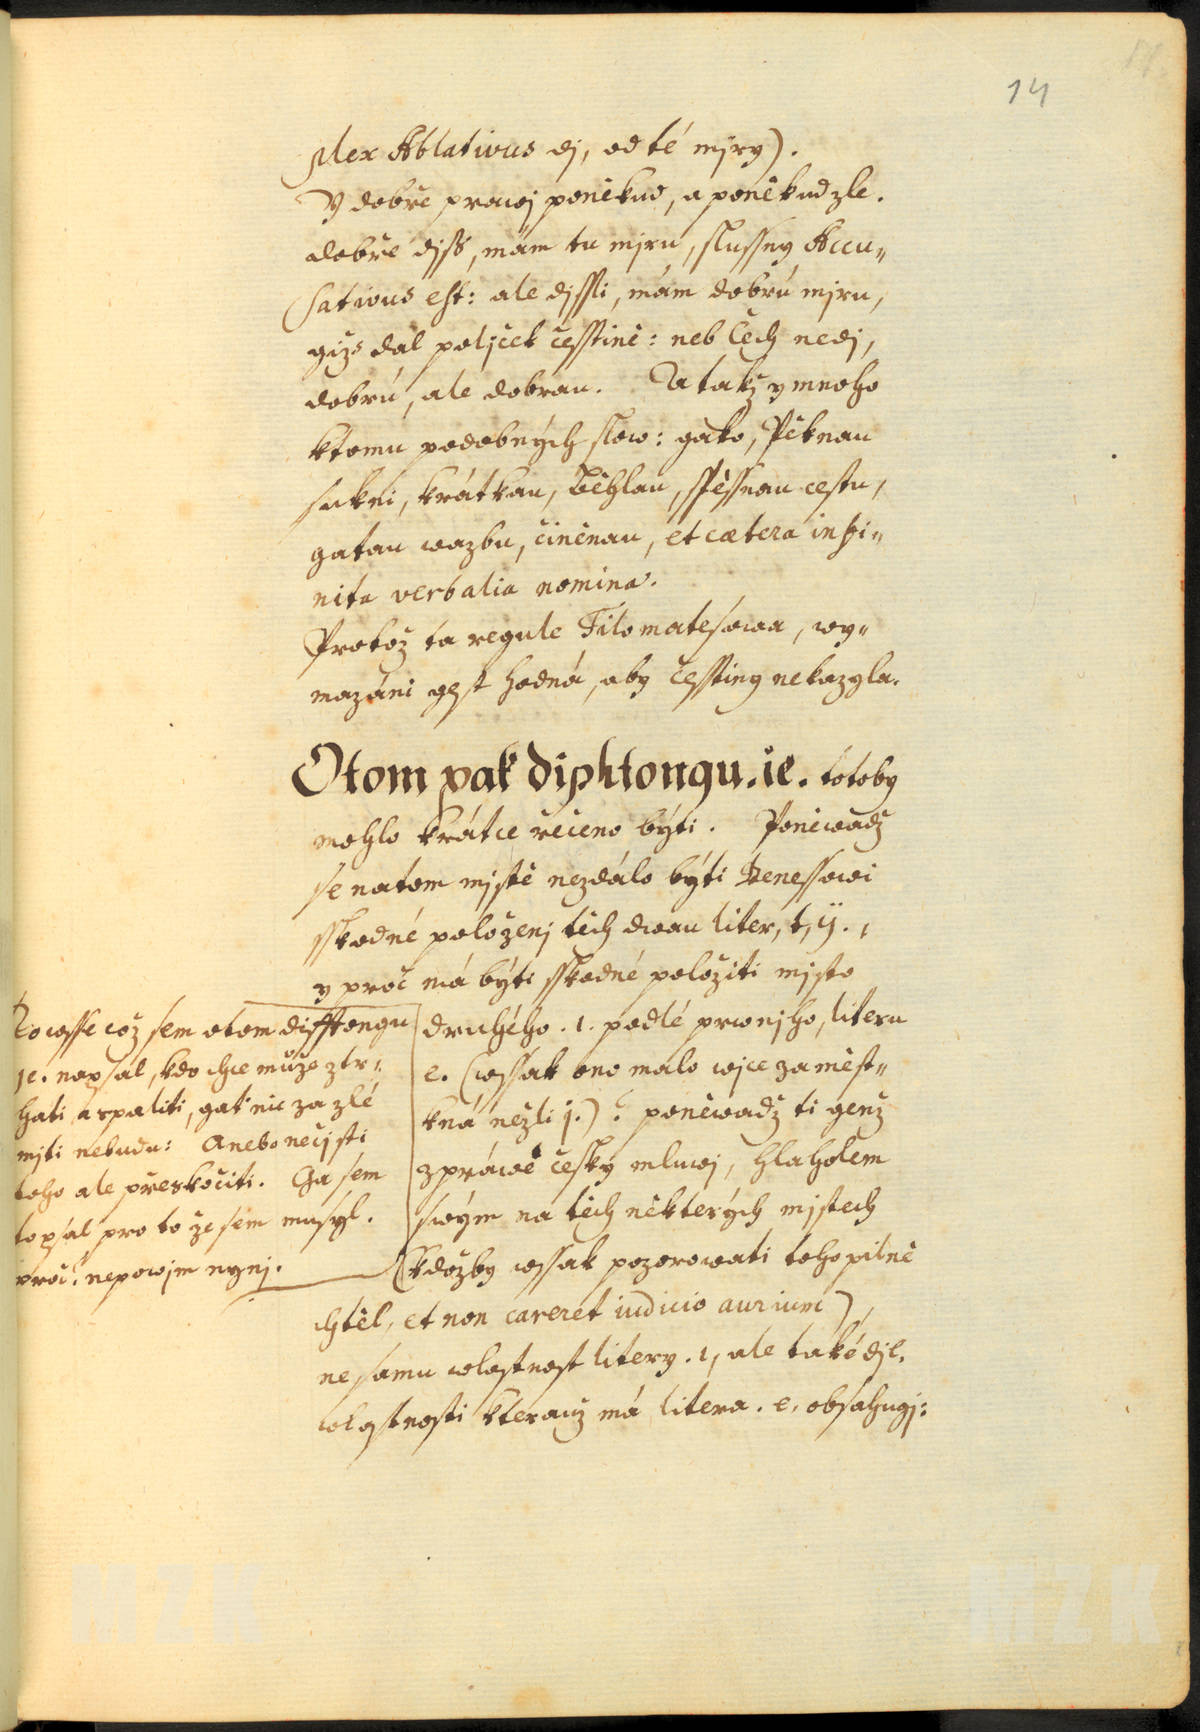 14
plex Ablativus dj, od té mjry).
Y dobře prawj poněkud, a poněkud zle.
dobře djss, mám tu mjru, slussný Accu„
sativus est: ale djssli, mám dobrú mjru,
gižs dal poljček češtině: neb Čech nedj,
dobrú, ale dobrau. A takž y mnoho
ktomu podobných slow: gako, Pěknau
sukni, krátkau, běhlau, spěssnau cestu,
gatau wazbu, činěnau, et cætera infi„
nita verbalia nomina.
Protož ta regule Filomatesowa, wy„
mazáni gest hodná, aby čessting nekazyla.
Otom pak diphtongu .ie. totoby
mohlo krátce řečeno býti. Poněwadž
se natom mjstě nezdálo býti Benessowi
sskodné položenj těch dwau liter, t, ij.,
y proč má býti sskodné položiti mjsto
druhého .i. podlé prwnjho, literu
e. (wssak ono malo wjce zaměst„
kná nežli j.)? poněwadž ti genž
zpráwě česky mluwj, hlaholem
swým na těch některých mjstech
(kdožby wssak pozorowati toho pilně
chtěl, et non careret iudicio aurium)
ne samu wlastnost litery .i, ale také djl.
wlastnosti kterauž má litera .e. obsahugj:
Towsse což sem otom difftongu
je. napsal, kdo chce může ztr„
hati a spaliti, gať nic za zlé
mjti nebudu: Anebo nečjsti
toho ale přeskočiti. Ga sem
to psal proto že sem musyl.
proč? nepowjm nynj.
MZK
MZK